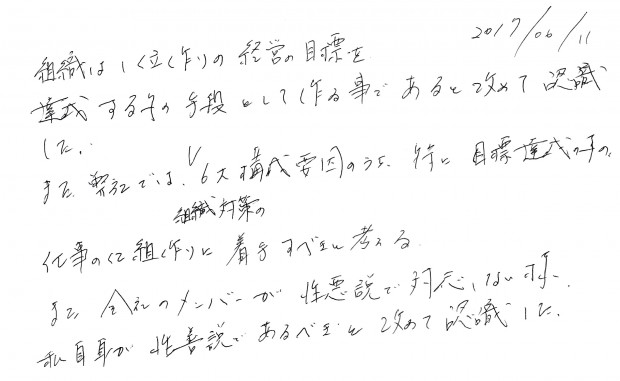 2017/06/11
組織は、しくみ作りの経営の目標を
達成する為の手段として作る事であると改めて認識
した。
また弊社では、6大構成要因のうち、特に目標達成の為の、
組織対策の
仕事のしくみ作りに着手すべきと考える。
また会社のメンバーが性悪説で対応しない様、
私自身が性善説であるべきと改めて認識した。